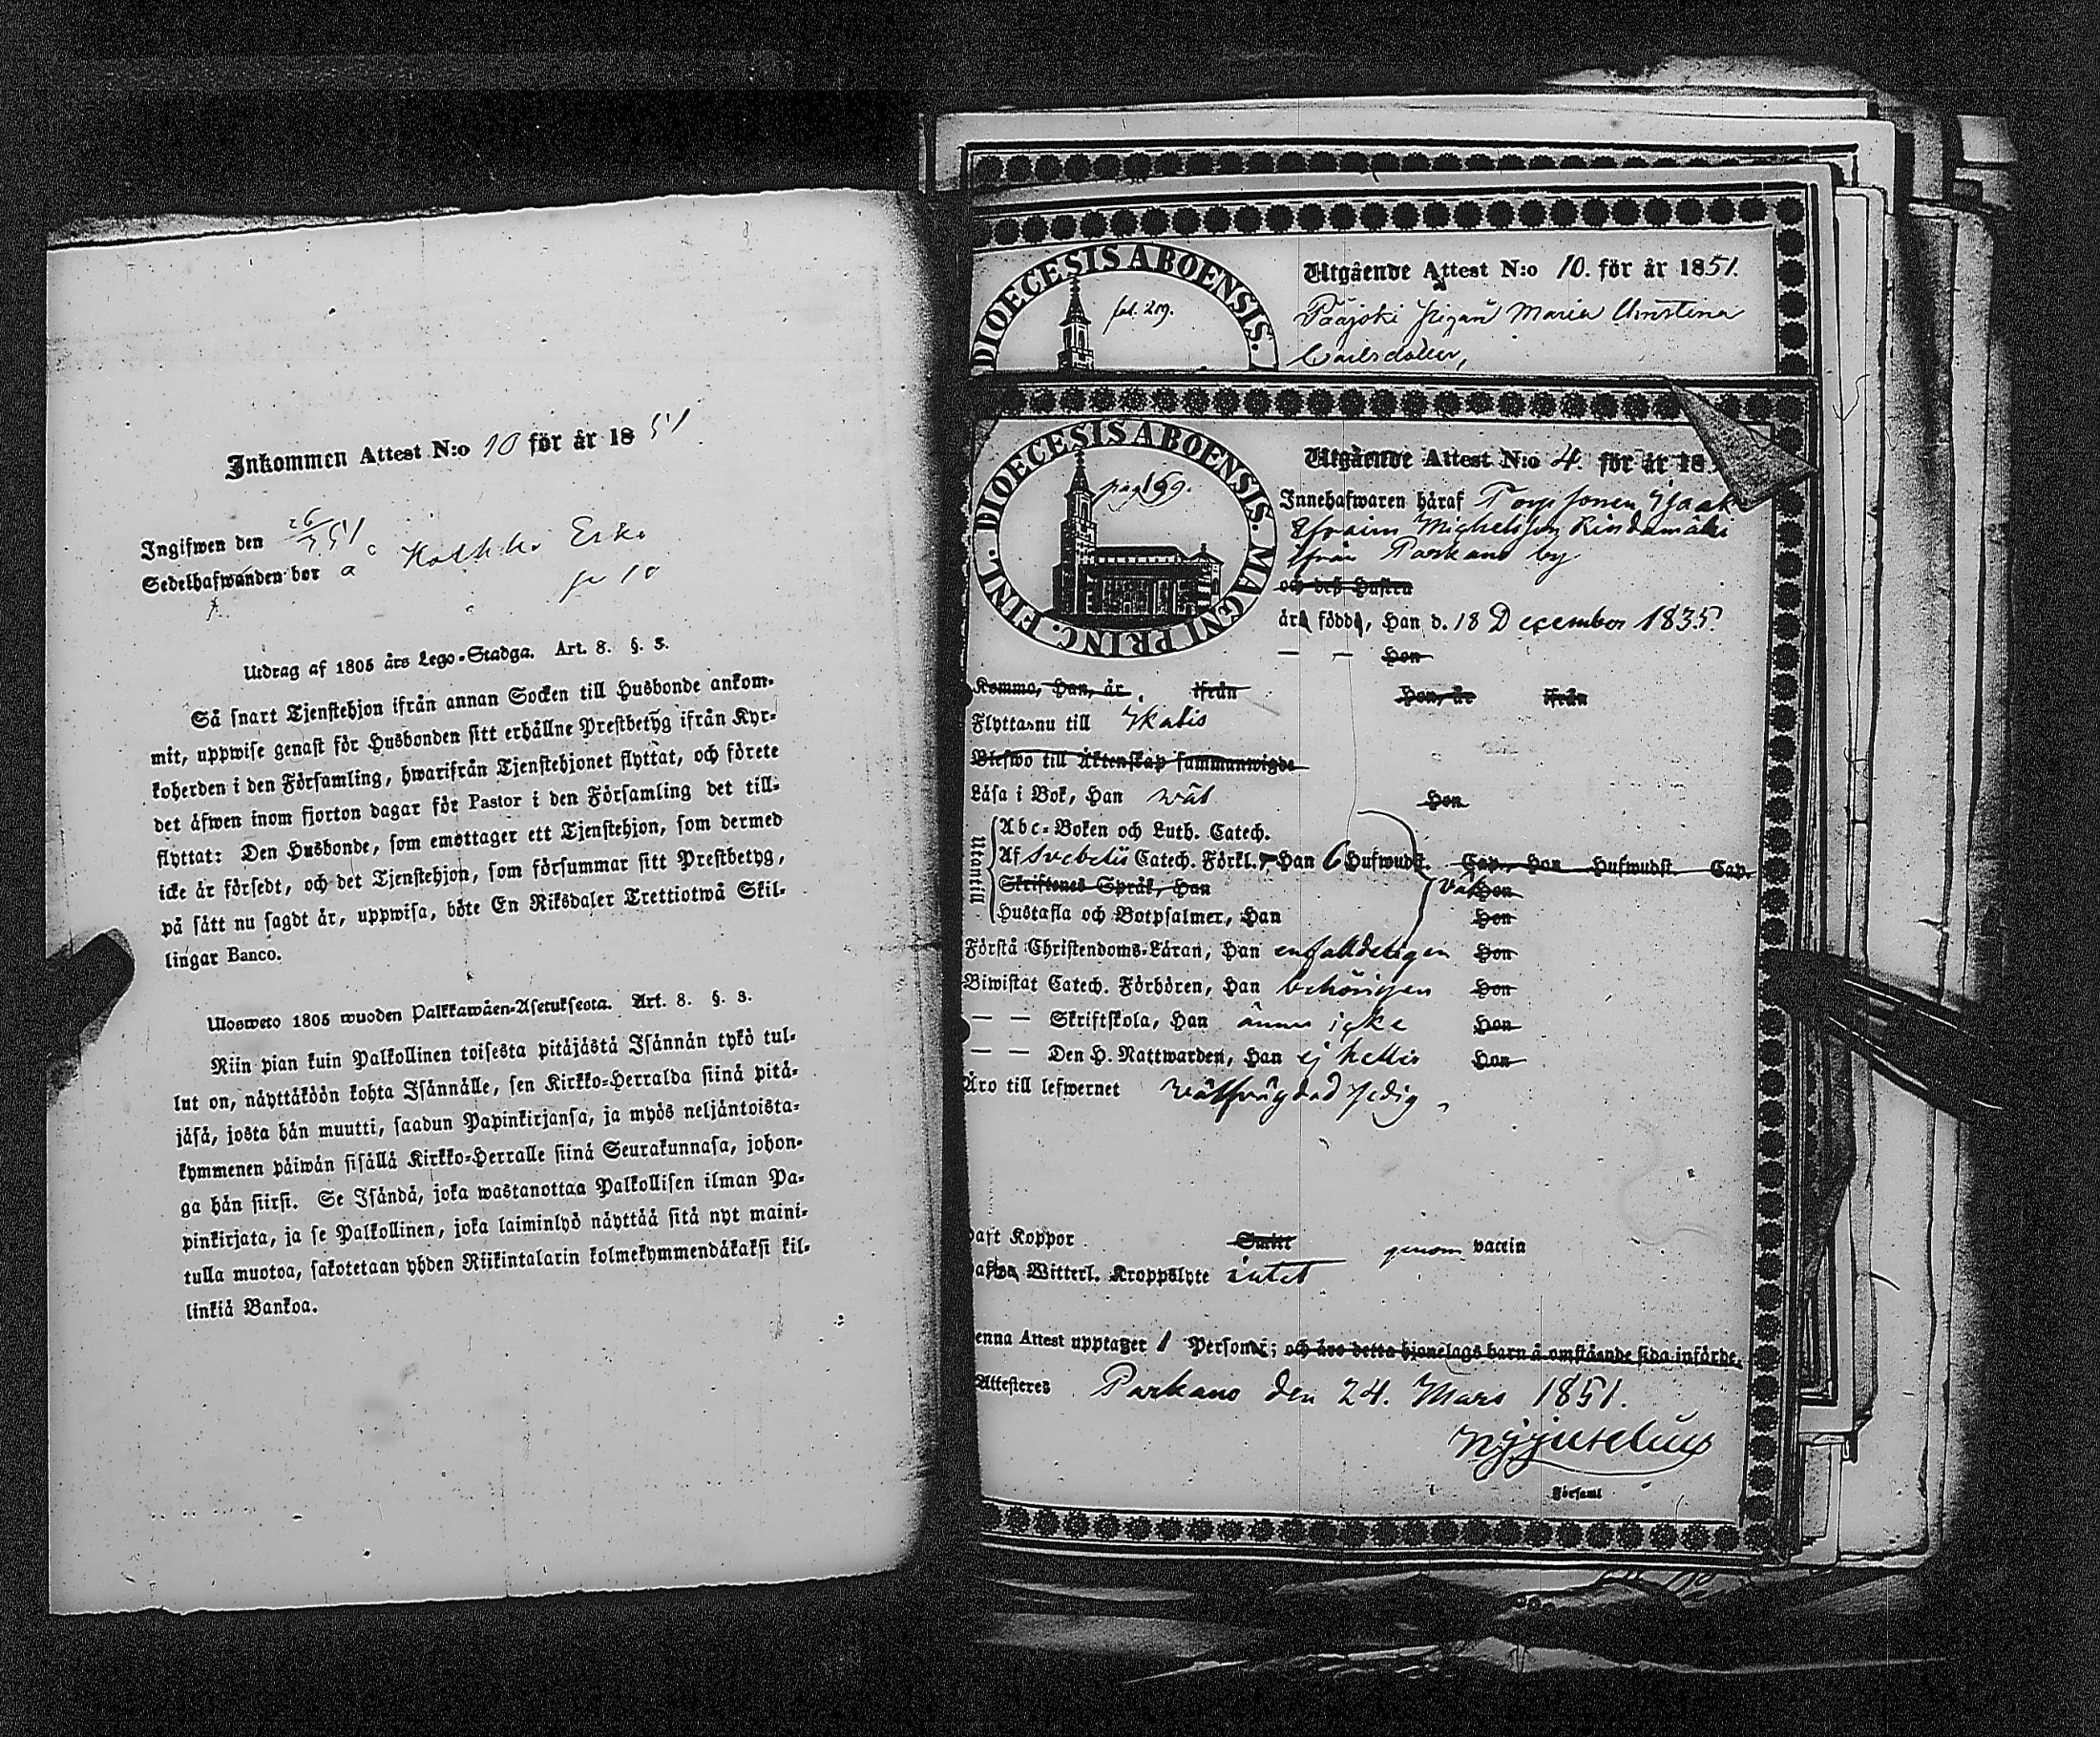 Inkommen Attest N:o 10 för år 1851
Ingifwen den 26/3 51
Sedelhafwanden bor å Esko
Utdrag af 1805 års Lego-Stadga. Art. 8. §. 3.
Så snart Tjenstehjon ifrån annan Socken till Husbonde ankom-
mit, uppwise genast för Husbonden sitt erhållne Prestbetyg ifrån Kyr-
koherden i den Församling, hwarifrån Tjenstehjonet flyttat, och förete
det äfwen inom fjorton dagar för Pastor i den Församling det till-
flyttat: Den Husbonde, som emottager ett Tjenstehjon, som dermed
icke är försedt, och det Tjenstehjon, som försummar sitt Prestbetyg,
på sätt nu sagdt är, uppwisa, böte En Riksdaler Trettiotwå Skil-
lingar Banco.
Ulosweto 1805 wuoden Palkkawäen-Asetuksesta. Art. 8. §. 3.
Niin pian kuin Palkollinen toisesta pitäjästä Isännän tykö tul-
lut on, näyttäköön kohta Isännälle, sen Kirkko-Herralda siinä pitä-
jäsä, josta hän muutti, saadun Papinkirjansa, ja myös neljäntoista-
kymmenen päiwän sisällä Kirkko-Herralle siinä Seurakunnasa, johon-
ga hän siirsi. Se Isändä, joka wastanottaa Palkollisen ilman Pa-
pinkirjata, ja se Palkollinen, joka laiminlyö näyttää sitä nyt maini-
tulla muotoa, sakotetaan yhden Riikintalarin kolmekymmendäkaksi kil-
linkiä Bankoa.
DIOECESIS ABOENSIS.
fol. 219.
Utgående Attest N:o 10. för år 1851.
Pääjoki pigan Maria Christina
Carlsdotter,
FINL. DIOECESIS ABOENSIS. MAGNI PRINC.
pag 159.
Utgående Attest N:o 4. för år 18
Innehafwaren häraf
Efraim Michelsson Rindamäki
ifrån Parkano by
och deß Hustru
är född, Han d. 18 December 1835.
— — Hon
Kommo, Han, år ifrån Hon, år ifrån
Flyttar nu till Ikalis
Blefwo till Äktenskap sammanwigde
Läsa i Bok, Han wäl Hon
Utantill
Abc-Boken och Luth. Catech.
Af Svebelii Catech. Förkl., Han 6 Hufwudst. Cap., Hon Hufwudst. Cap.
Skriftenes Språk, Han wäl Hon
Hustafla och Botpsalmer, Han Hon
Förstå Christendoms-Läran, Han enfaldeligen Hon
Biwistat Catech. Förhören, Han behörigen Hon
— — Skriftskola, Han ännu icke Hon
— — Den H. Nattwarden, Han ej heller Hon
Äro till lefwernet wälfrägdad ledig
haft Koppor Smitt genom vaccin
Witterl. Kroppslyte intet
enna Attest upptager 1 Person; och äro detta hjonelags barn å omstående sida införde.
Attesteres Parkano den 24. Mars 1851.
Församl